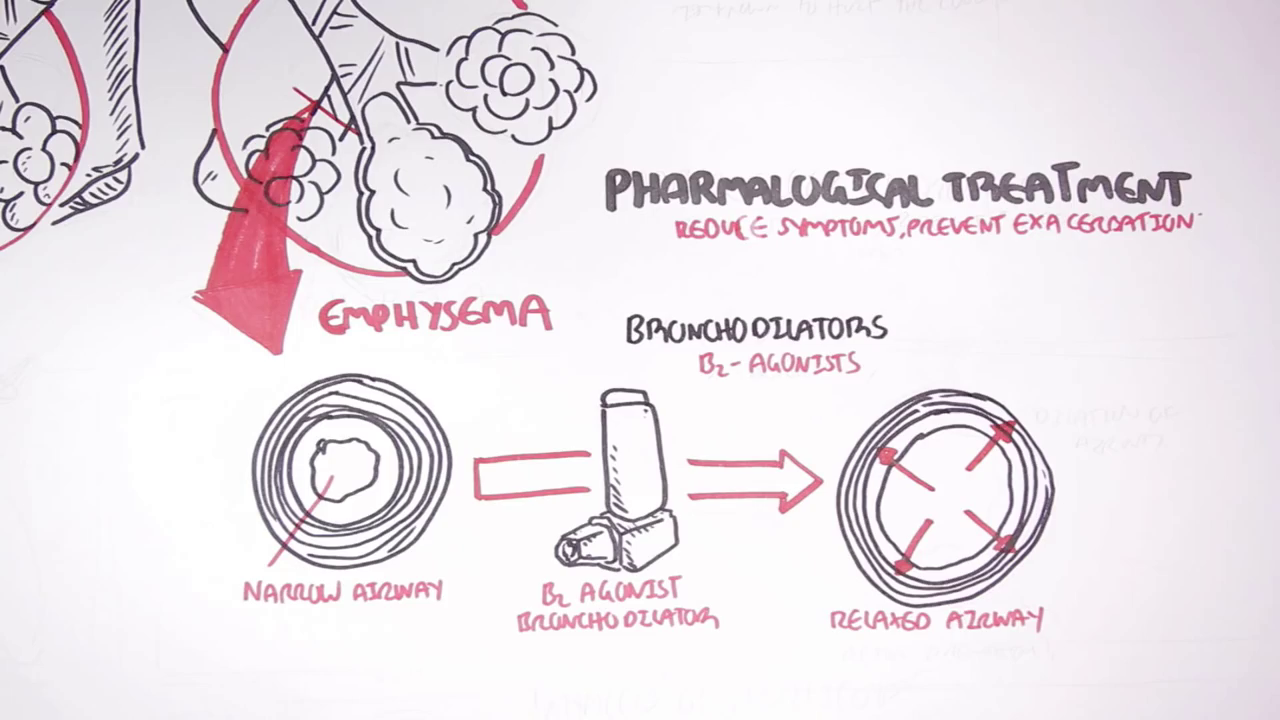 PHARMALOGICAL TREATMENT
REDUCE SYMPTOMS, PREVENT EXACERBATION
EMPHYSEMA
BRONCHODILATORS
B2-AGONISTS
NARROW AIRWAY
B2 AGONIST
BRONCHODILATOR
RELAXED AIRWAY